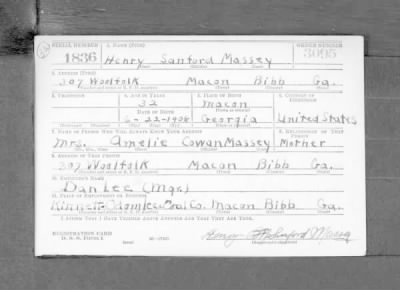 SERIAL NUMBER 1. NAME (Print) ORDER NUMBER
1836 Henry Sanford Massey 3095
2. ADDRESS (Print)
307 Woolfolk Macon Bibb Ga.
3. TELEPHONE 4. AGE IN YEARS 5. PLACE OF BIRTH 6. COUNTRY OF CITIZENSHIP
32 Macon
DATE OF BIRTH
6-22-1908 Georgia United States
7. NAME OF PERSON WHO WILL ALWAYS KNOW YOUR ADDRESS 8. RELATIONSHIP OF THAT PERSON
Mrs. Amelie Cowan Massey Mother
9. ADDRESS OF THAT PERSON
307 Woolfolk Macon Bibb Ga.
10. EMPLOYER'S NAME
Dan Lee (Mgr)
11. PLACE OF EMPLOYMENT OR BUSINESS
Co. Macon Bibb Ga.
I AFFIRM THAT I HAVE VERIFIED ABOVE ANSWERS AND THAT THEY ARE TRUE.
REGISTRATION CARD
D. S. S. FORM 1 Henry Massey